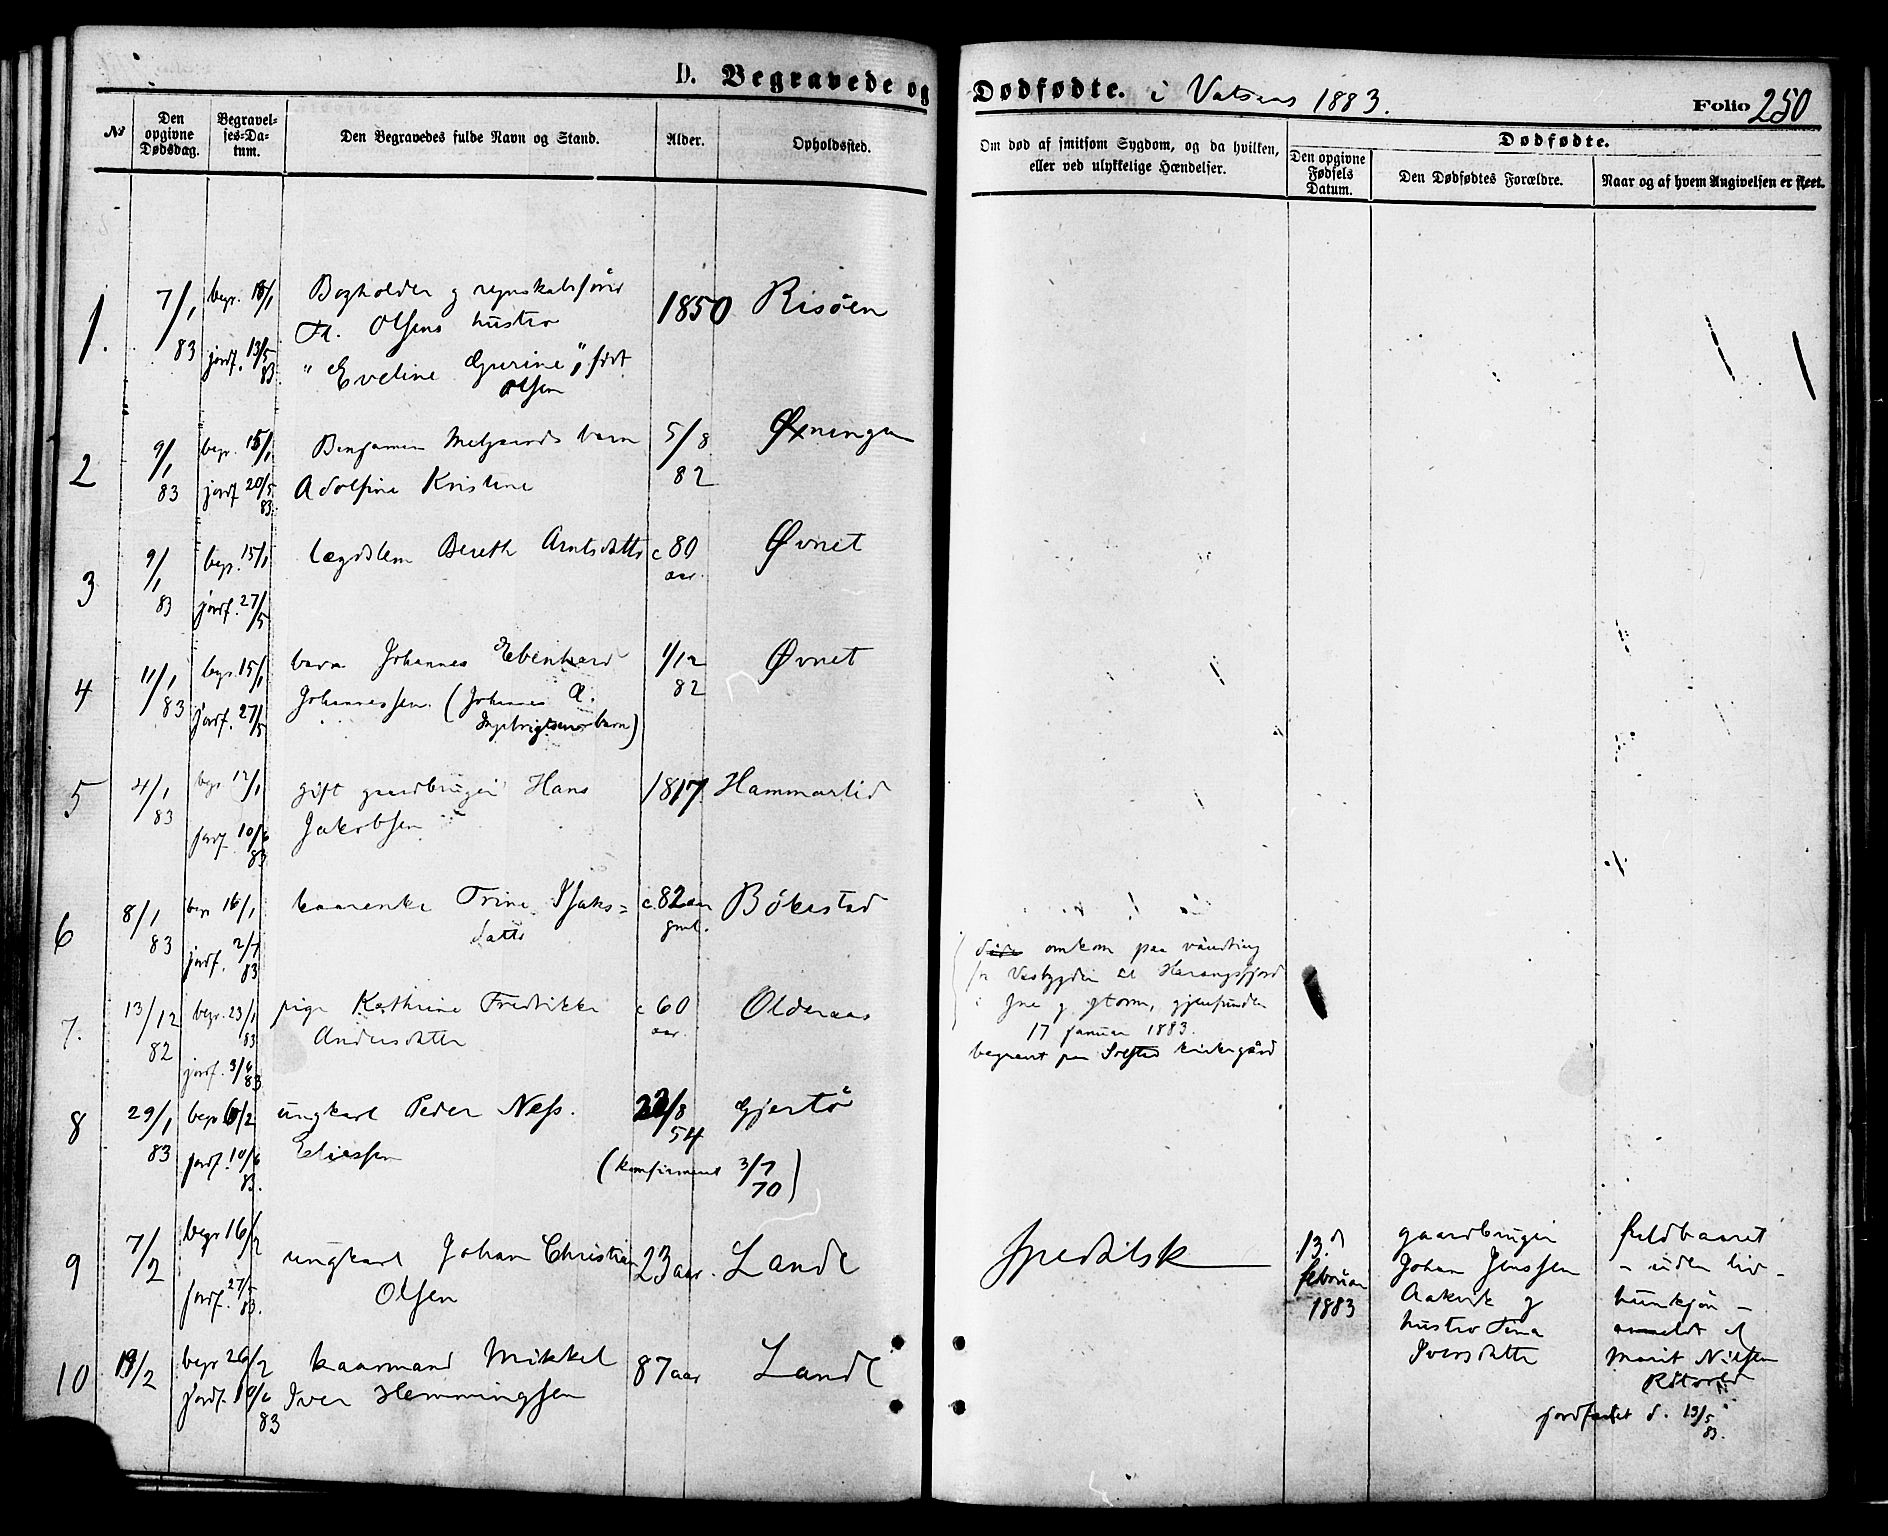 D. Begravede og Dødfødte. i 1883. Folio 250
№
Den opgivne Dødsdag.
Begravel-
ses-Da-
tum.
Den Begravedes fulde Navn og Stand.
Alder.
Opholdssted.
Om død af smitsom Sygdom, og da hvilken,
eller ved ulykkelige Hændelser.
Dødfødte.
Den opgivne
Fødsels
Datum.
Den Dødfødtes Forældre.
Naar og af hvem Angivelsen er skeet.
1. 7/1 83 begr. /1 jordf. 13/5 83
Bogholder og regnskabsfører
Olsens hustro
"Eveline Gurine", født
Olsen
1850 Risöen
2 9/1 83 begr. 15/1 jordf 20/5 83
Benjamin barn
Adolfine Kristine
5/8 82 Øxningen
3 9/1 83 begr. 15/1 jordf. 27/5
lægdslem Bereth Arntsdatter
c 80 aar. Øvnet
4 11/1 83 begr. 15/1 jordf. 27/5
barn Johannes Ebenhard
Johannessen. (Johannes A.
barn)
1/12 82 Øvnet
5 4/1 83 begr 12/1 jordf. 10/6 83
gift gaardbruger Hans
Jakobsen
1817 Hammerlid
6 8/1 83 begr 16/1 jordf. 2/7 83
kaarenke Trine Isaks=
datter
c. 82 aar gml. Bökestad
7. 13/12 82 begr. 23/1 83 jordf. 3/6 83
pige Kathrine Fredrikke
Andersdatter
c 60 aar. Olderaas
døde omkom paa
fra Vasbygden til
i sne og storm, gjenfunden
17 januar 1883.
begravet paa kirkegård
8 29/1 83 begr 6/2 jordf. 10/6 83.
ungkarl Peder Ness.
Eliessen
/8 54 Gjertö
(konfirmeret 3/7 70)
9 7/2 begr 16/2 jordf. 27/5 83.
ungkarl Johan Christian
Olsen
23 aar. Lande
Spedalsk
10 19/2 begr 26/2 jordf. 10/6 83
kaarmand Mikkel
Iver Hemmingsen
87 aar Lande
13.d
februar
1883
gaardbruger
Johan Jenssen
Aakvik og
hustro Tina
Iversdatter
fuldbaaret
- uden liv -
hunkjøn -
anmeldt af
Marit Nilsen
jordfæstet d. 13/5 83.